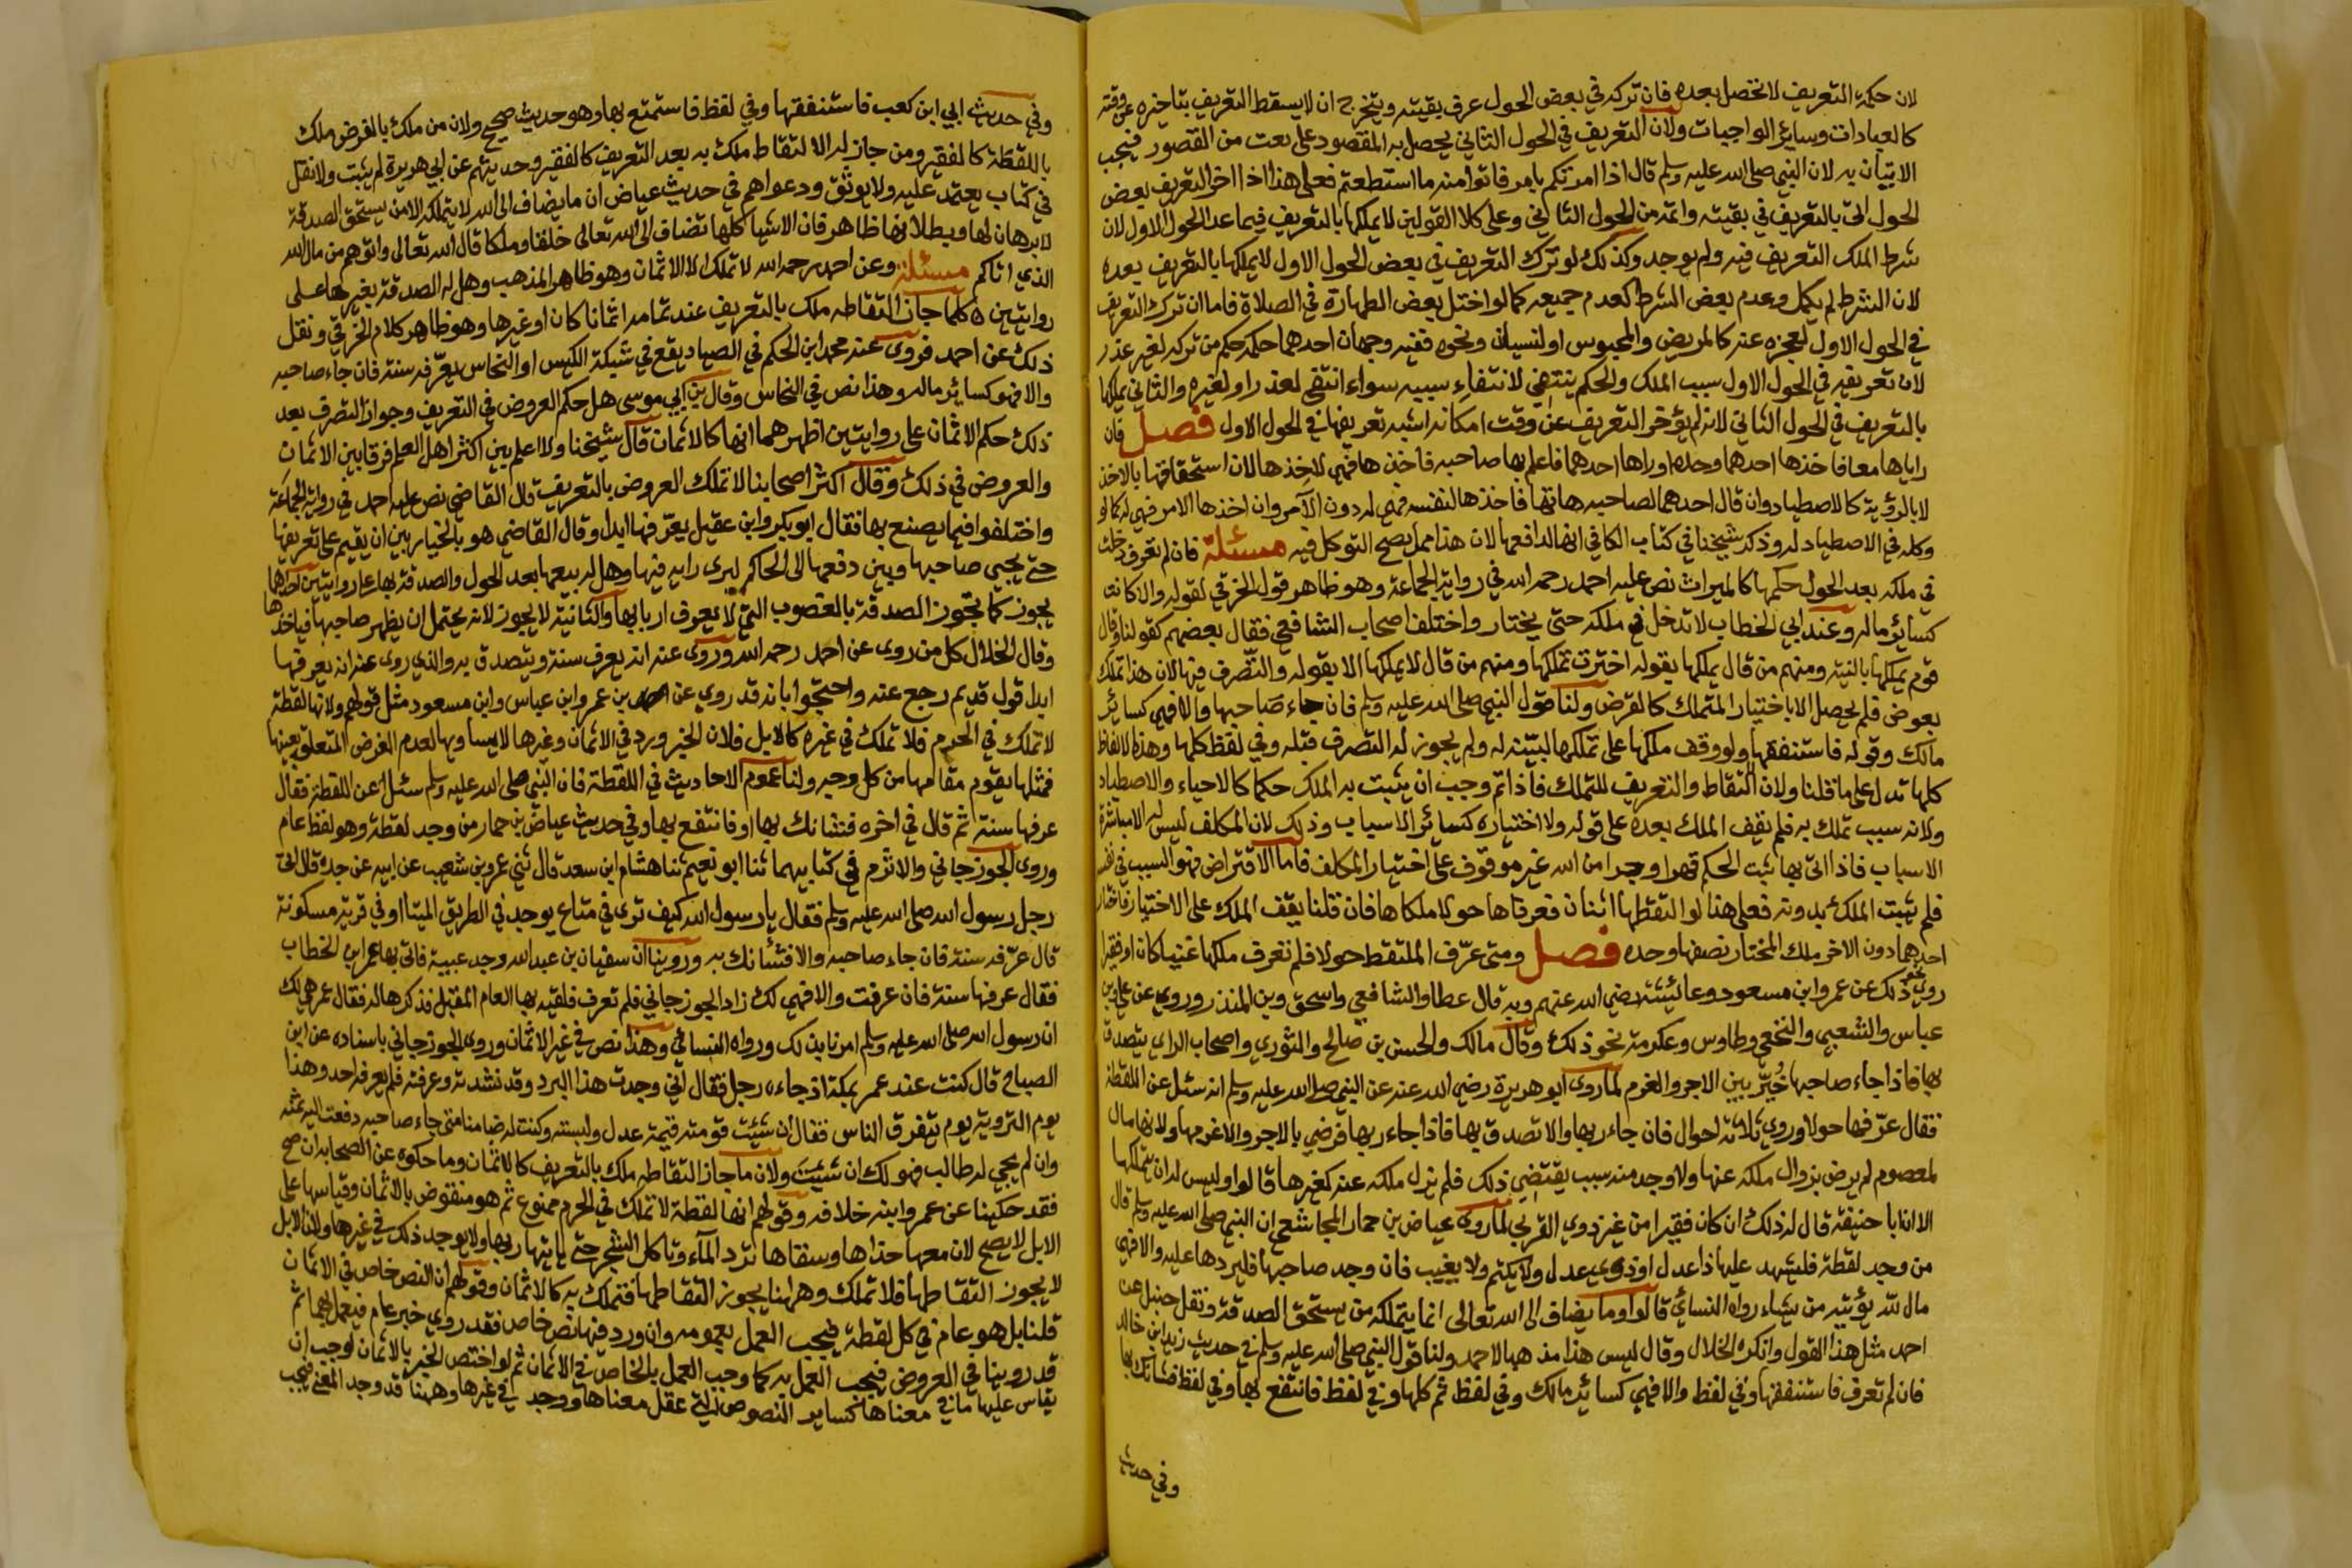 لان حكمة التعريف لا تحصل بعده فان تركه في بعض الحول عرف بقيته ويتخرج ان لا يسقط التعريف بتاخيره عن وقته
كالعبادات وساير الواجبات ولان التعريف في الحول الثاني يحصل به المقصود على نعت من القصور فيجب
الاتيان به لان النبي صلى الله عليه وسلم قال اذا امرتكم بامر فاتوا منه ما استطعتم فعلى هذا اذا اخر التعريف بعض
الحول اتى بالتعريف في بقيته واتمه من الحول الثاني وعلى كلا القولين لا يملكها بالتعريف فيما عدا الحول الاول لان
شرط الملك التعريف فيه ولم يوجد وكذلك لو ترك التعريف في بعض الحول الاول لا يملكها بالتعريف بعده
لان الشرط لم يكمل وعدم بعض الشرط كعدم جميعه كما لو اختل بعض الطهارة في الصلاة فاما ان ترك التعريف
في الحول الاول لعجزه عنه كالمريض والمحبوس او لنسيان ونحوه ففيه وجهان احدهما حكمه حكم من تركه لغير عذر
لان تعريفه في الحول الاول سبب الملك والحكم ينتفي لانتفاء سببه سواء انتفى لعذر او لغيره والثاني يملكها
بالتعريف في الحول الثاني لانه لم يؤخر التعريف عن وقت امكانه اشبه تعريفها في الحول الاول فصل فان
راياها معا فاخذها احدهما وحده او راها احدهما فاعلم بها صاحبه فاخذها فهي لاخذها لان استحقاقها بالاخذ
لا بالرؤية كالاصطياد وان قال احدهما لصاحبه هاتها فاخذها لنفسه فهي له دون الآمر وان اخذها للامر فهي له كما لو
وكله في الاصطياد له وذكر شيخنا في كتاب الكافي انها لرافعها لان هذا مما يصح التوكل فيه مسئلة فان لم تعرف دخلت
في ملكه بعد الحول حكما كالميراث نص عليه احمد رحمه الله في رواية الجماعة وهو ظاهر قول الخرقي لقوله والا كانت
كسائر ماله وعند ابي الخطاب لا تدخل في ملكه حتى يختار واختلف اصحاب الشافعي فقال بعضهم كقولنا وقال
قوم يملكها بالنية ومنهم من قال يملكها بقوله اخترت تملكها ومنهم من قال لا يملكها الا بقوله والتصرف فيها لان هذا تملك
بعوض فلم يحصل الا باختيار المتملك كالقرض ولنا قول النبي صلى الله عليه وسلم فان جاء صاحبها والا فهي كسائر
مالك وقوله فاستنفقها ولو وقف ملكها على تملكها لبينه له ولم يجوز له التصرف قبله وفي لفظ كلها وهذه الالفاظ
كلها تدل على ما قلنا ولان التقاط والتعريف للتملك فاذا تم وجب ان يثبت به الملك حكما كالاحياء والاصطياد
ولانه سبب تملك به فلم يقف الملك بعده على قوله ولا اختياره كسائر الاسباب وذلك لان المكلف ليس له الا مباشرة
الاسباب فاذا اتى بها ثبت الحكم قهرا وجبرا من الله غير موقوف على اختيار المكلف فاما الاقتراض فهو السبب في نفسه
فلم يثبت الملك بدونه فعلى هذا لو التقطها اثنان فعرفاها حولا ملكاها فان قلنا يقف الملك على الاختيار فاختار
احدهما دون الاخر ملك المختار نصفها وحده فصل ومتى عرف الملتقط حولا فلم تعرف ملكها غنيا كان او فقيرا
روي نحو ذلك عن عمر وابن مسعود وعائشة رضي الله عنهم وبه قال عطا والشافعي واسحق وبن المنذر وروي عن علي وبن
عباس والشعبي والنخعي وطاوس وعكرمة نحو ذلك وقال مالك والحسن بن صالح والثوري واصحاب الراي يتصدق
بها فاذا جاء صاحبها خير بين الاجر والغرم لما روى ابو هريرة رضي الله عنه عن النبي صلى الله عليه وسلم انه سئل عن اللقطة
فقال عرفها حولا وروي ثلاثة احوال فان جاء ربها والا تصدق بها فاذا جاء ربها فرضي بالاجر والا غرمها ولانها مال
لمعصوم لم يرض بزوال ملكه عنها ولا وجد منه سبب يقتضي ذلك فلم يزل ملكه عنه كغيرها قالوا وليس له ان يتملكها
الا ان ابا حنيفة قال له ذلك ان كان فقيرا من غير ذوي القربى لما روى عياض بن حمار المجاشعي ان النبي صلى الله عليه وسلم قال
من وجد لقطة فليشهد عليها ذا عدل او ذوي عدل ولا يكتم ولا يغيب فان وجد صاحبها فليردها عليه والا فهي
مال لله يؤتيه من يشاء رواه النسائي قالوا وما يضاف الى الله تعالى انما يتملكه من يستحق الصدقة ونقل حنبل عن
احمد مثل هذا القول وانكره الخلال وقال ليس هذا مذهبا لاحمد ولنا قول النبي صلى الله عليه وسلم في حديث زيد ابن خالد
فان لم تعرف فاستنفقها وفي لفظ والا فهي كسائر مالك وفي لفظ ثم كلها وفي لفظ فانتفع بها وفي لفظ فشانك بها
وفي حديث
وفي حديث ابي ابن كعب فاستنفقها وفي لفظ فاستمتع بها وهو حديث صحيح ولان من ملك بالقرض ملك
باللقطة كالفقير ومن جاز له الالتقاط ملك به بعد التعريف كالفقير وحديثهم عن ابي هريرة لم يثبت ولا نقل
في كتاب يعتمد عليه ولا يوثق ودعواهم في حديث عياض ان ما يضاف الى الله لا يتملكه الا من يستحق الصدقة
لا برهان لها وبطلانها ظاهر فان الاشيا كلها تضاف الى الله تعالى خلقا وملكا قال الله تعالى واتوهم من مال الله
الذي اتاكم مسئلة وعن احمد رحمه الله لا تملك الا الاثمان وهو ظاهر المذهب وهل له الصدقة بغيرها على
روايتين كلما جاز التقاطه ملك بالتعريف عند تمامه اثمانا كان او غيرها وهو ظاهر كلام الخرقي ونقل
ذلك عن احمد فروى عنه محمد ابن الحكم في الصياد يقع في شبكة الكيس او النحاس يعرفه سنة فان جاء صاحبه
والا فهو كسائر ماله وهذا نص في النحاس وقال بن ابي موسى هل حكم العروض في التعريف وجواز التصرف بعد
ذلك حكم الاثمان على روايتين اظهرهما انها كالاثمان قال شيخنا ولا اعلم بين اكثر اهل العلم فرقا بين الاثمان
والعروض في ذلك وقال اكثر اصحابنا لا تملك العروض بالتعريف قال القاضي نص عليه احمد في رواية الجماعة
واختلفوا فيما يصنع بها فقال ابو بكر وابن عقيل يعرفها ابدا وقال القاضي هو بالخيار بين ان يقيم على تعريفها
حتى يجيى صاحبها وبين دفعها الى الحاكم ليرى رايه فيها وهل له بيعها بعد الحول والصدقة بها على روايتين احداهما
يجوز كما تجوز الصدقة بالغصوب التي لا يعرف اربابها والثانية لا يجوز لانه يحتمل ان يظهر صاحبها فياخذها
وقال الخلال كل من روى عن احمد رحمه الله وروى عنه انه يعرف سنة ويتصدق به والذي روى عنه انه يعرفها
ابدا قول قديم رجع عنه واحتجوا بانه قد روي عن بن عمر وابن عباس وابن مسعود مثل قولهم ولانها لقطة
لا تملك في الحرم فلا تملك في غيره كالابل فلان الخبر ورد في الاثمان وغيرها لا يساويها لعدم الغرض المتعلق بعينها
فمثلها يقوم مقامها من كل وجه ولنا عموم الاحاديث في اللقطة فان النبي صلى الله عليه وسلم سئل عن اللقطة فقال
عرفها سنة ثم قال في اخره فشانك بها او فانتفع بها وفي حديث عياض بن حمار من وجد لقطة وهو لفظ عام
وروى الجوزجاني والاثرم في كتابيهما ثنا ابو نعيم ثنا هشام ابن سعد قال ثني عمرو بن شعيب عن ابيه عن جده قال اتى
رجل رسول الله صلى الله عليه وسلم فقال يا رسول الله كيف ترى في متاع يوجد في الطريق الميتاا او في قرية مسكونة
قال عرفه سنة فان جاء صاحبه والا فشأنك به وروينا ان سفيان بن عبد الله وجد عيبة فاتى بها عمر ابن الخطاب
فقال عرفها سنة فان عرفت والا فهي لك زاد الجوزجاني فلم تعرف فلقيه بها العام المقبل فذكرها له فقال عمر هي لك
ان رسول الله صلى الله عليه وسلم امرنا بذلك ورواه النسائي وهذا نص في غير الاثمان وروى الجوزجاني باسناده عن ابن
الصباح قال كنت عند عمر بمكة اذ جاءه رجل فقال اني وجدت هذا البرد وقد نشدته وعرفته فلم يعرفه احد وهذا
يوم التروية يوم يتفرق الناس فقال ان شئت قومته قيمة عدل ولبسته وكنت له ضامنا متى جاء صاحبه دفعت اليه ثمنه
وان لم يجي له طالب فهو لك ان شئت ولان ما جاز التقاطه ملك بالتعريف كالاثمان وما حكوه عن الصحابة ان صح
فقد حكينا عن عمر وابنه خلافه وقولهم انها لقطة لا تملك في الحرم ممنوع ثم هو منقوض بالاثمان وقياسها على
الابل لا يصح لان معها حذاها وسقاها ترد المآء وتاكل الشجر حتى ياتيها ربها ولا يوجد ذلك في غيرها ولان الابل
لا يجوز التقاطها فلا تملك وههنا يجوز التقاطها فتملك به كالاثمان وقولهم ان النص خاص في الاثمان
قلنا بل هو عام في كل لقطة فيجب العمل بعمومه وان ورد فيها نص خاص فقد روي خبر عام فيعمل بهما ثم
قد روينا في العروض فيجب العمل به كما وجب العمل بالخاص في الاثمان ثم لو اختص الخبر بالاثمان لوجب ان
يقاس عليها ما في معناها كساير النصوص التي عقل معناها ووجد في غيرها وههنا قد وجد المعنى فيجب